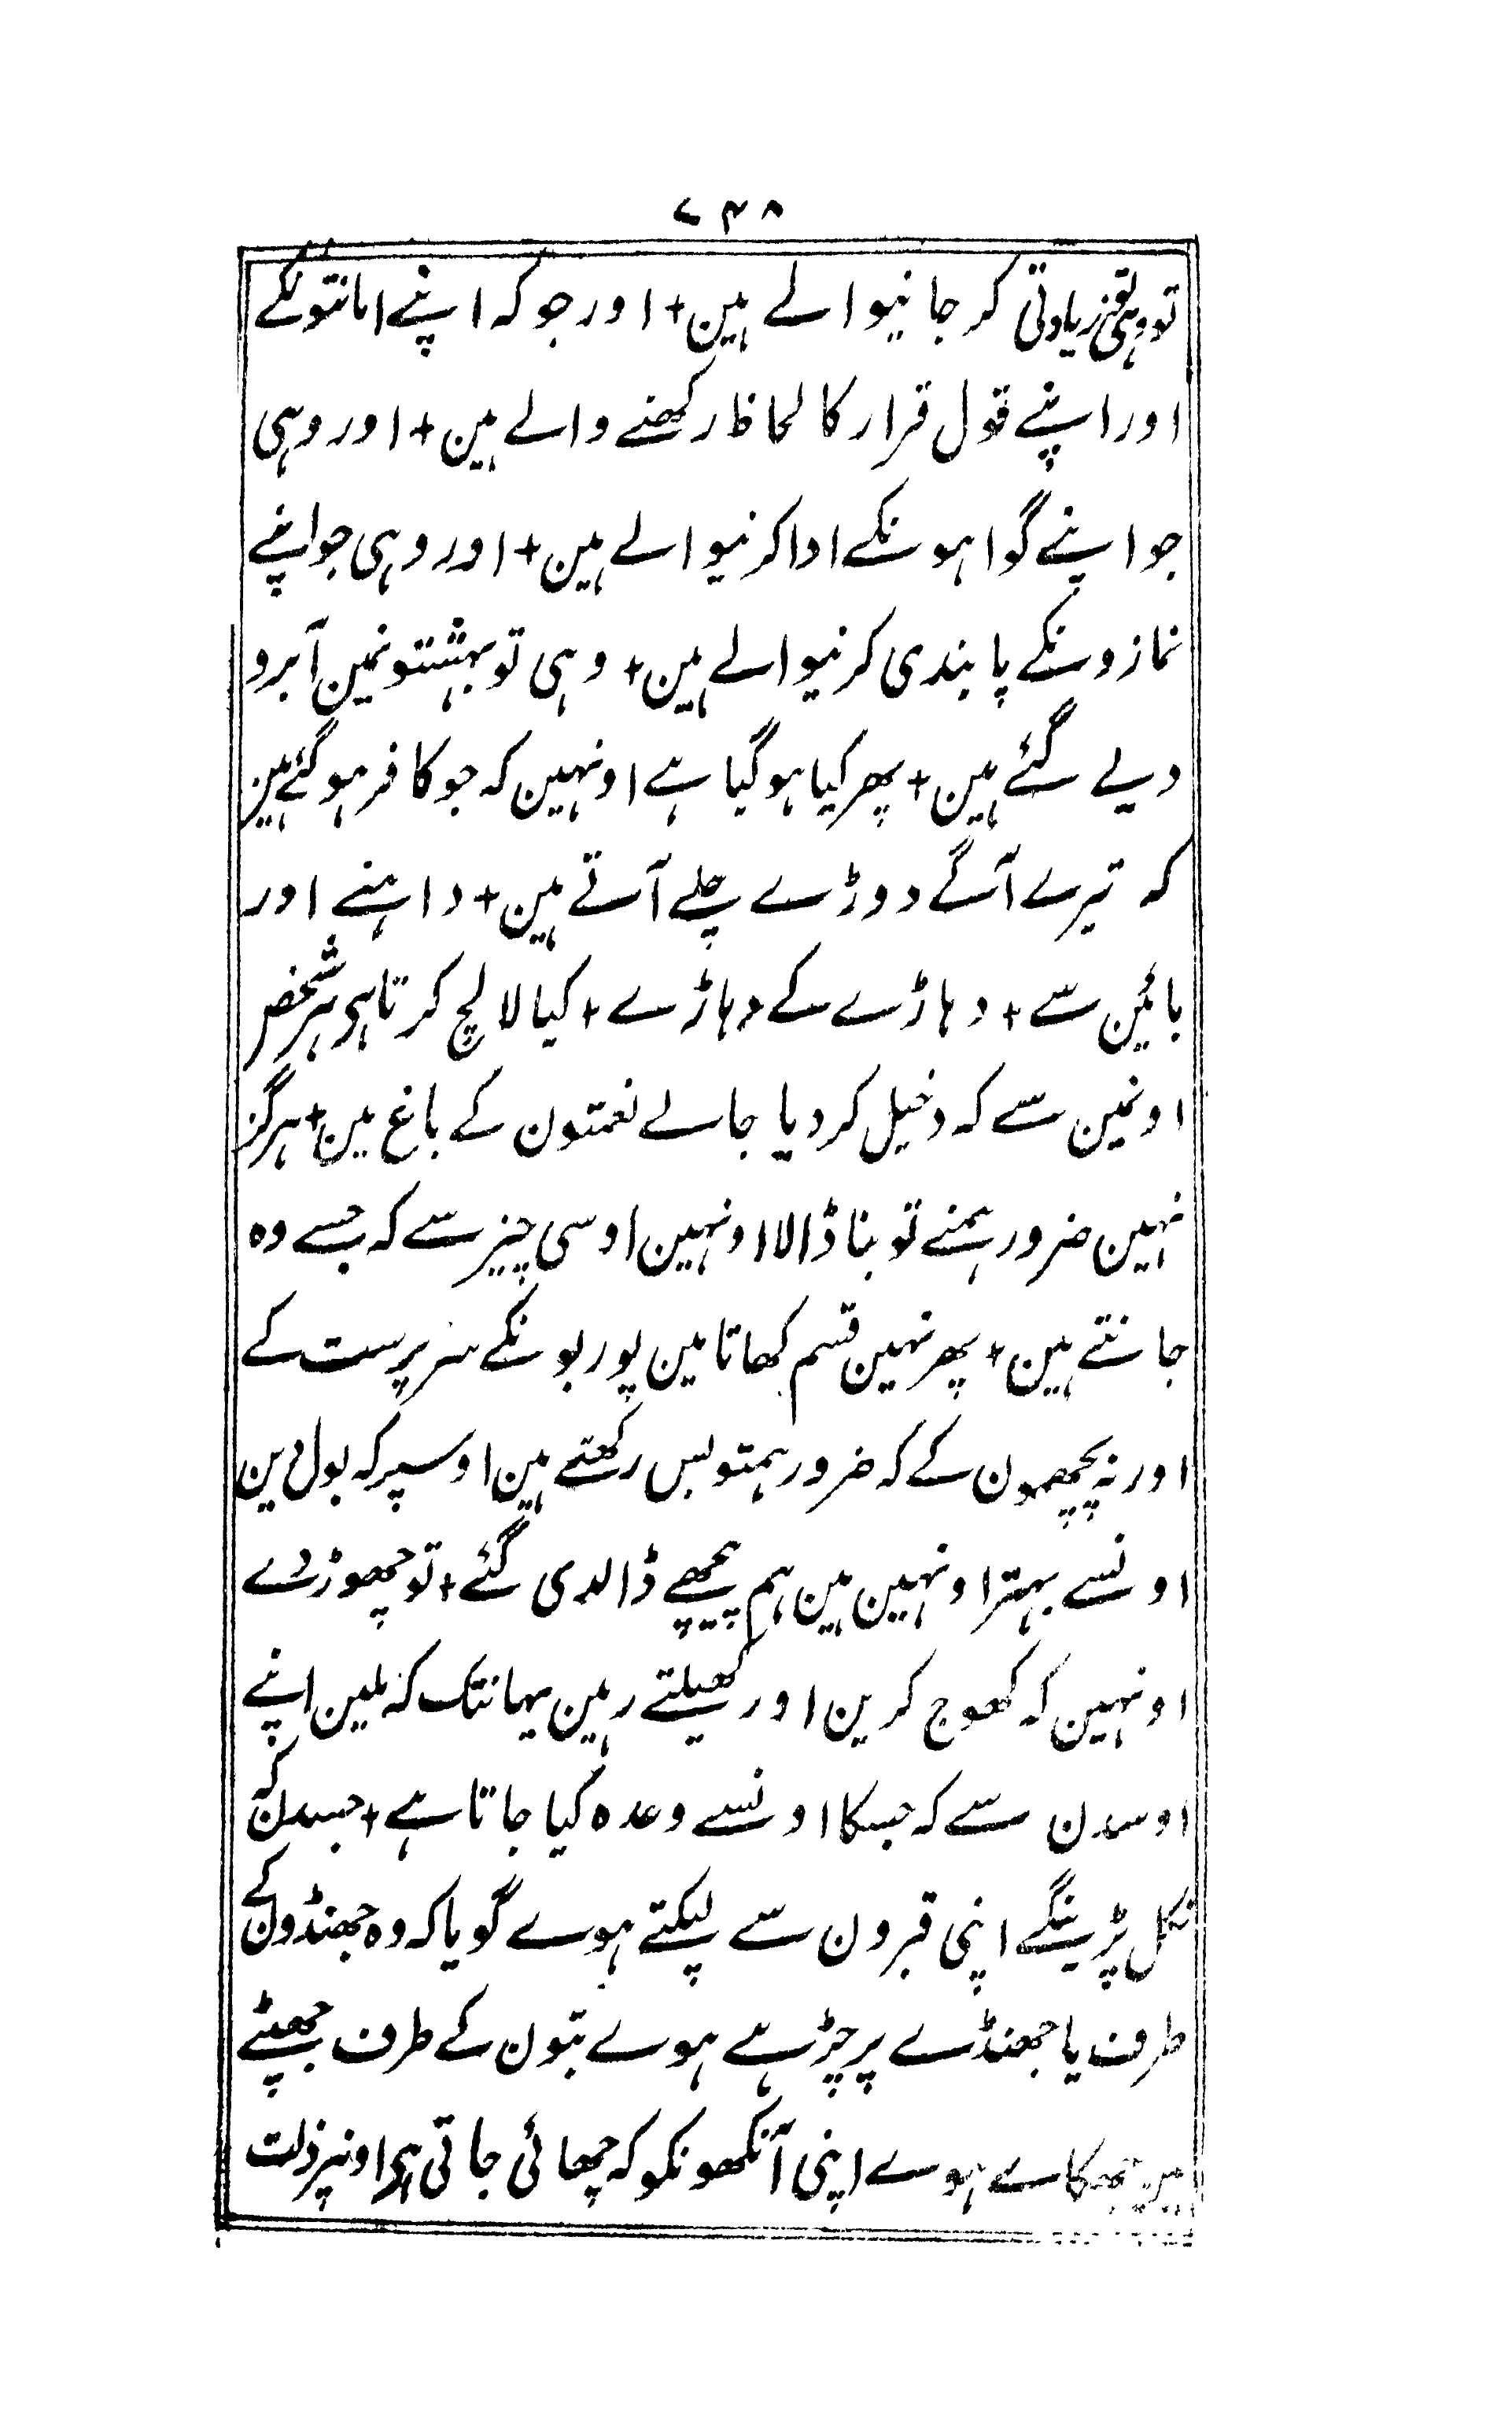 ۷۴۸
تو وہی تو زیادتی کر جانیوالے ہین + اور جو کہ اپنے امانتونکے
اور اپنے قول قرار کا لحاظ رکھنے والے ہین + اور وہی
جو اپنے گواہونکے ادا کرنیوالے ہین + اور وہی جو اپنے
نمازونکے پابندی کرنیوالے ہین + وہی تو بہشتونمین آبرو
دیے گئے ہین + پھر کیا ہو گیا ہے اونہین کہ جو کافر ہو گئے ہین
کہ تیرے آگے دوڑے چلے آتے ہین + داہنے اور
بائین سے + دہاڑے کے دہاڑے + کیا لالچ کرتا ہی ہر شخص
اونمین سے کہ دخیل کر دیا جالے نعمتون کے باغ مین + ہرگز
نہین ضرور ہمنے تو بنا ڈالا اونہین اوسی چیز سے کہ جسے وہ
جانتے ہین + پھر نہین قسم کھاتا مین پوربونکے سرپرست کے
اور نہ پچھمون کے کہ ضرور ہمتو بس رکھتے ہین اوسپر کہ بول دین
اونسے بہتر اونہین مین ہم پیچھے ڈالدی گئے + تو چھوڑ دے
اونہین کہ کھوج کرین اور کھیلتے رہین یہانتک کہ ملین اپنے
اوسدن سے کہ جسکا اونسے وعدہ کیا جاتا ہے + جسدن کہ
نکل پڑینگے اپنی قبرون سے لپکتے ہوے گویا کہ وہ جھنڈون کے
طرف یا جھنڈے پر چڑہے ہوے بتون کے طرف جھپٹے
ہین جھکاے ہوے اپنی آنکھونکو کہ چھائی جاتی ہی اونپر ذلت